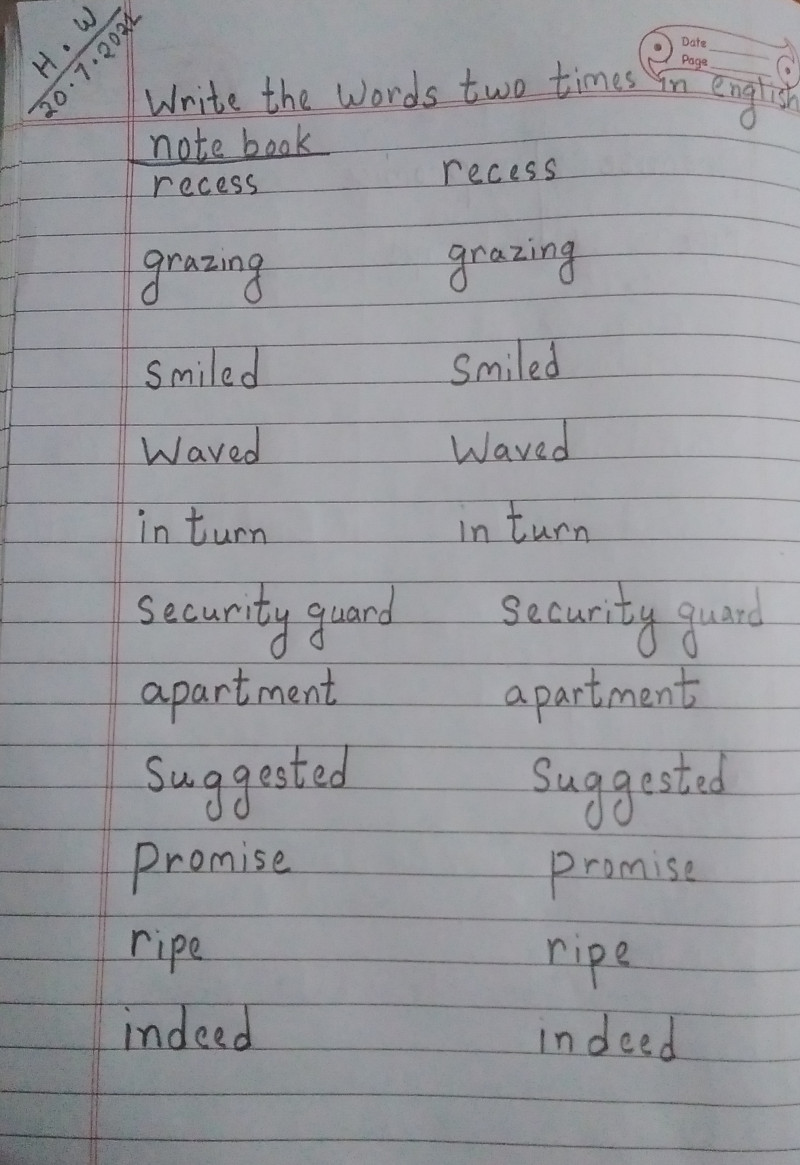 H.W
20.7.2021
Date
Page
Write the words two times in english
note book
recess recess
grazing grazing
Smiled Smiled
Waved Waved
in turn in turn
Security guard Security guard
apartment apartment
Suggested Suggested
Promise Promise
ripe ripe
indeed indeed